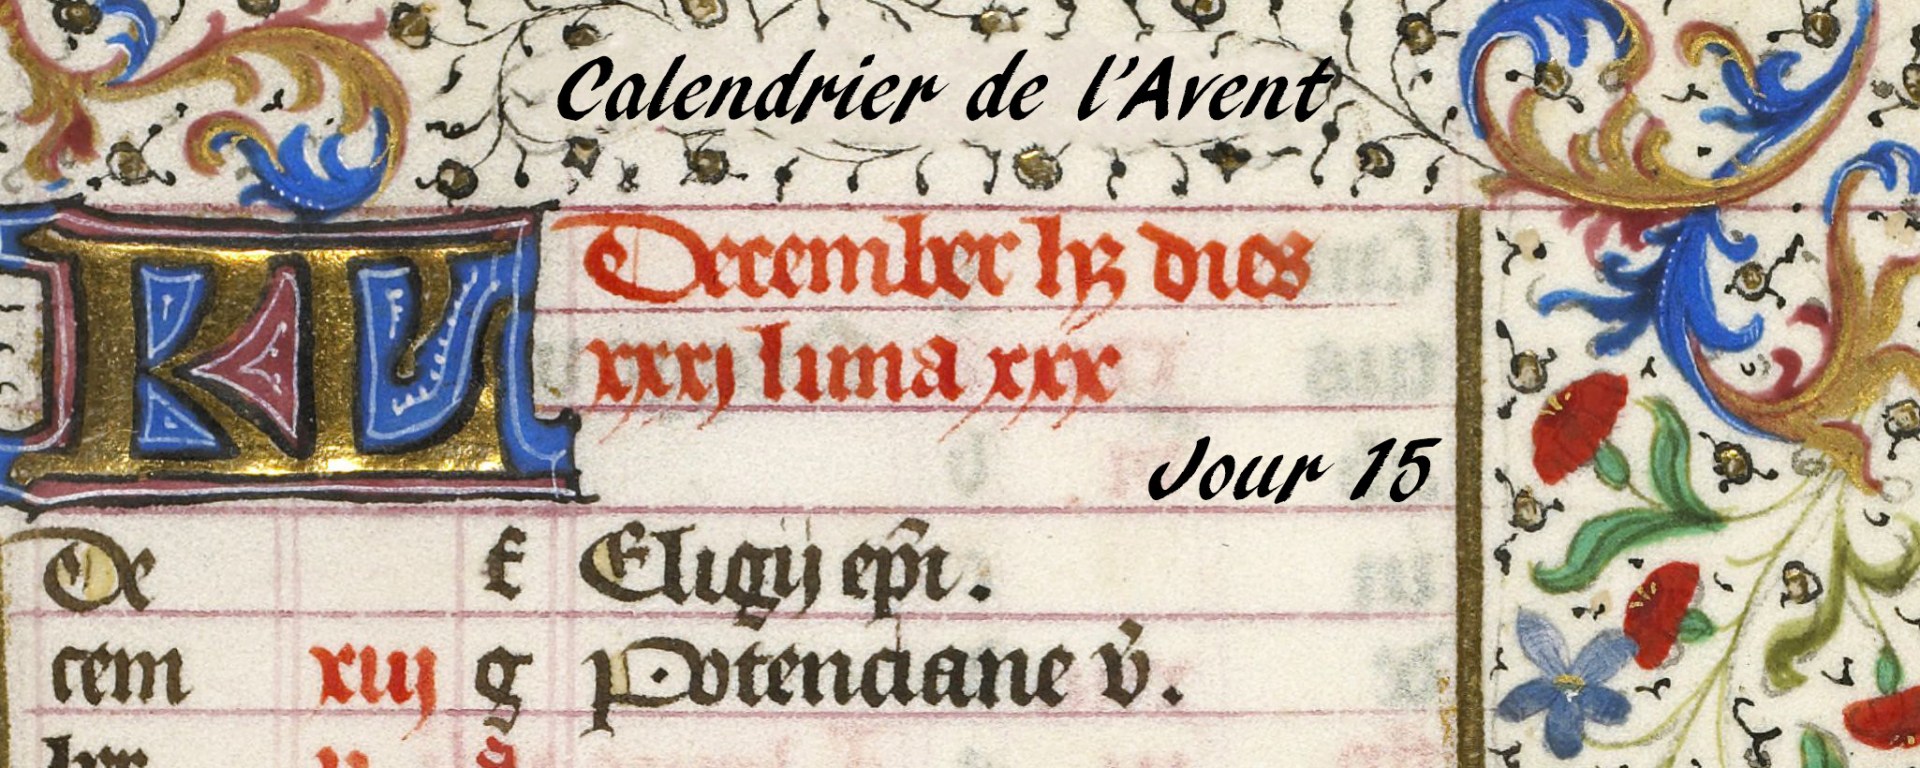 Calendrier de l'Avent
KL December hꝫ dies
xxxj luna xxx
Jour 15
De f Eligij ep̄i.
cem xiij g Potenciane v̄.